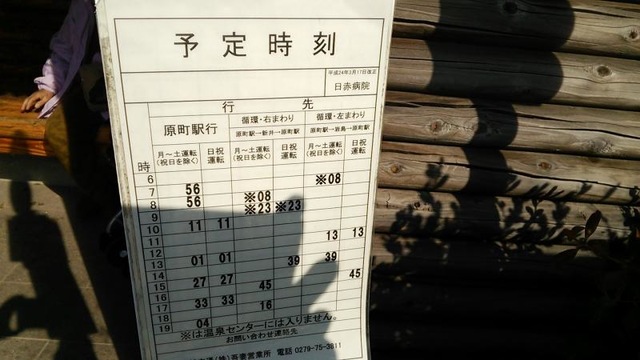 予定時刻
平成24年3月17日改正
日赤病院
行先
原町駅行 循環・右まわり 循環・左まわり
原町駅→新井→原町駅 原町駅→岩島→原町駅
時 月～土運転(祝日を除く) 日祝運転 月～土運転(祝日を除く) 日祝運転 月～土運転(祝日を除く) 日祝運転
6
7 56 ※08
8 56 ※08
9 ※23 ※23
10 11 11
11 13 13
12
13 01 01 39 39
14 45
15 27 27 45
16
17 33 33 16
18
19 04
※は温泉センターには入りません。
お問い合わせ連絡先
(株)吾妻営業所 電話 0279-75-3811